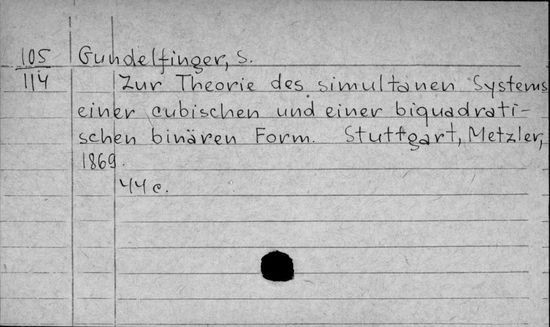 105 Gundelfinger, S.
114 Zur Theorie des simultanen Systems
einer cubischen und einer biquadrati-
schen binären Form. Stuttgart, Metzler,
1869.
44 c.